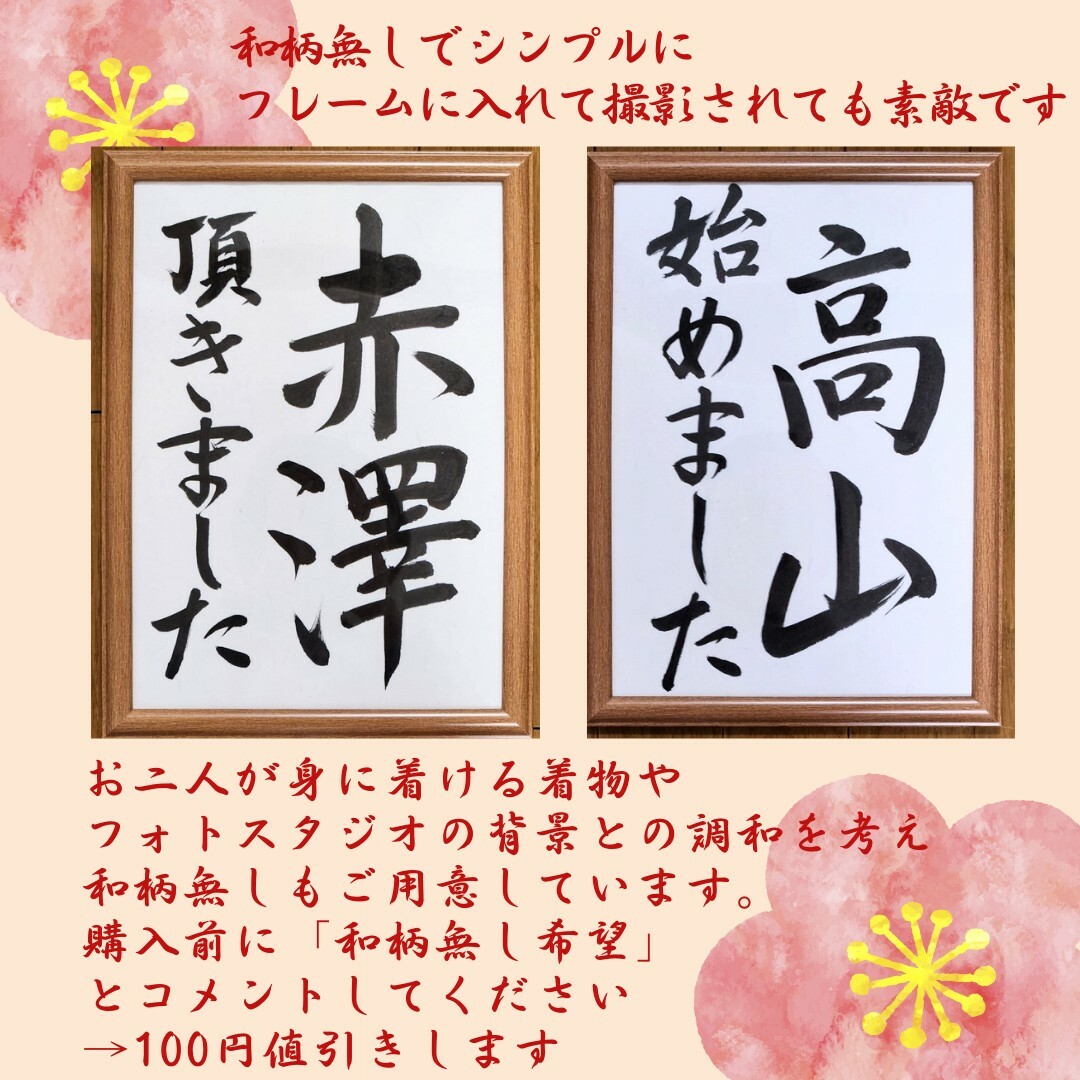 和柄無しでシンプルに
フレームに入れて撮影されても素敵です
赤澤
頂きました
高山
始めました
お二人が身に着ける着物や
フォトスタジオの背景との調和を考え
和柄無しもご用意しています。
購入前に「和柄無し希望」
とコメントしてください
→100円値引きします